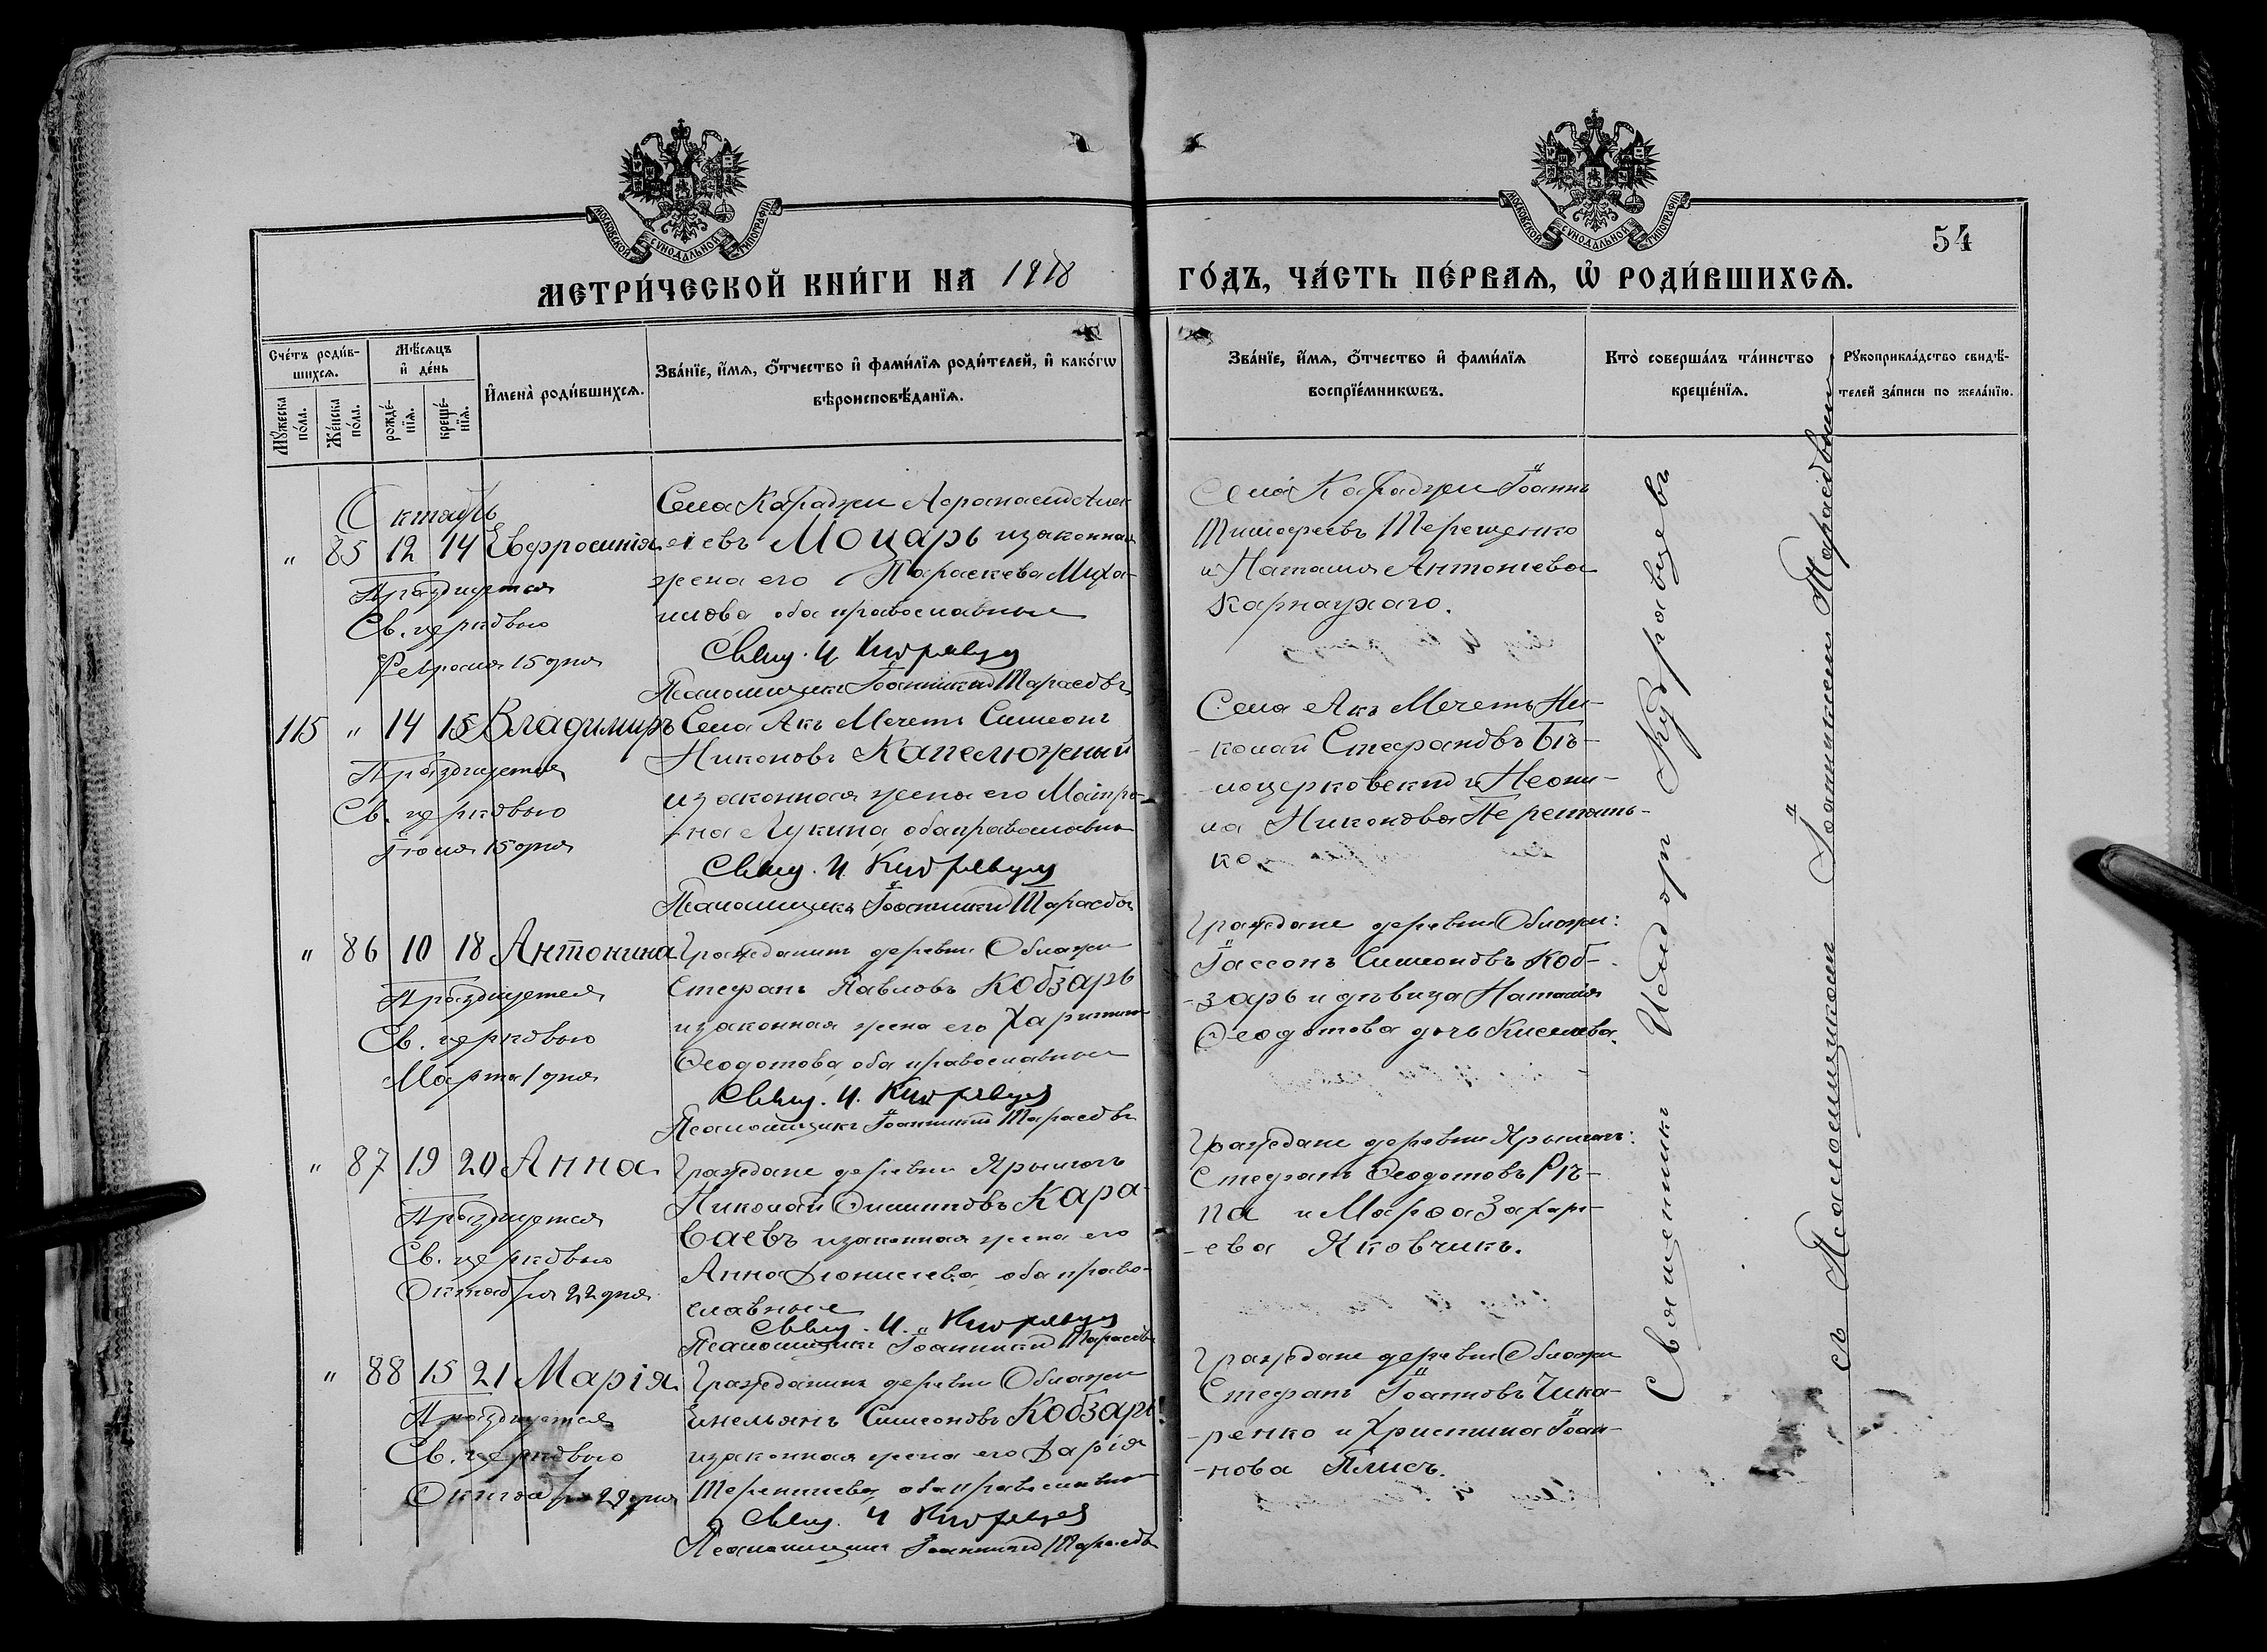 МОСКОВСКОЙ СѴНОДАЛЬНОЙ ТИПОГРАФІИ
МОСКОВСКОЙ СѴНОДАЛЬНОЙ ТИПОГРАФІИ
54
МЕТРИ́ЧЕСКОЙ КНИ́ГИ НА 1918 ГО́ДЪ, ЧА́СТЬ ПЕ́РВАѦ, Ѽ РОДИ́ВШИХСѦ.
Сче́тъ роди́в-
шихсѧ.
Мꙋ́жеска по́ла.
Же́нска по́ла.
Мѣ́сѧцъ и҆ де́нь
рожде́-
нїѧ.
креще́-
нїѧ.
И҆мена̀ роди́вшихсѧ.
Зва́нїе, и҆́мѧ, ѻ҆́тчество и҆ фами́лїѧ роди́телей, и҆ како́гѡ
вѣроисповѣ́данїѧ.
Зва́нїе, и҆́мѧ, ѻ҆́тчество и҆ фами́лїѧ
воспрїе́мникѡвъ.
Кто̀ соверша́лъ та́инство
креще́нїѧ.
Рꙋкоприкла́дство свидѣ́-
телей за́писи по жела́нїю.
Октябрь
" 85 12 14 Евфросинія
Празднуется
Св. церковью
Февраля 15 дня
Села Караджи Аѳанасій Алек-
ѣевъ Моцарь и законная
жена его Параскева Миха-
илова оба православные
Свящ. И. Кудрявцевъ
Псаломщикъ Іоанникій Тарасовъ
Села Караджи Іоаннъ
Тимофеевъ Терещенко
и Наталія Антоніева
Карнаухаго.
115 " 14 15 Владимиръ
Празднуется
Св. церковью
Іюля 15 дня
Села Акъ Мечеть Симеонъ
Никоновъ Капелюжный
и законная жена его Матро-
-на Лукина, оба православные
Свящ. И. Кудрявцевъ
Псаломщикъ Іоанникій Тарасовъ
Села Акъ Мечеть Ни-
-колай Стефановъ Бѣ-
-лоцерковскій и Неони-
ла Никонова Перетять-
ко
" 86 10 18 Антонина
Празднуется
Св. церковью
Марта 1 дня
Гражданинъ деревни Облажи
Стефанъ Павловъ Кобзарь
и законная жена его Харитина
Ѳеодотова, оба православные
Свящ. И. Кудрявцевъ
Псаломщикъ Іоанникій Тарасовъ
Граждане деревни Облажи:
Іассонъ Симеоновъ Коб-
-зарь и дѣвица Наталія
Ѳеодотова дочь Киселева.
" 87 19 20 Анна
Празднуется
Св. церковью
Октября 22 дня
Граждане деревни Ярылгачъ
Николай Филипповъ Кара-
ваевъ и законная жена его
Анна Діонисіева, оба право-
славные
Свящ. И. Кудрявцевъ
Псаломщикъ Іоанникій Тарасовъ
Граждане деревни Ярылгачъ:
Стефанъ Ѳеодотовъ Рѣ-
па и Марѳа Захарі-
-ева Яковчикъ.
" 88 15 21 Марія
Празднуется
Св. церковью
Октября 29 дня
Гражданинъ деревни Облажи
Емельянъ Симеоновъ Кобзарь
и законная жена его Дарія
Терентіева, оба православные
Свящ. И Кудрявцевъ
Псаломщикъ Іоанникій Тарасовъ
Граждане деревни Облажи
Стефанъ Іоанновъ Чика-
-ренко и Христина Іоан-
-нова Плисъ.
Священникъ Исидоръ Кудрявцевъ
съ Псаломщикомъ Іоанникіемъ Тарасовымъ